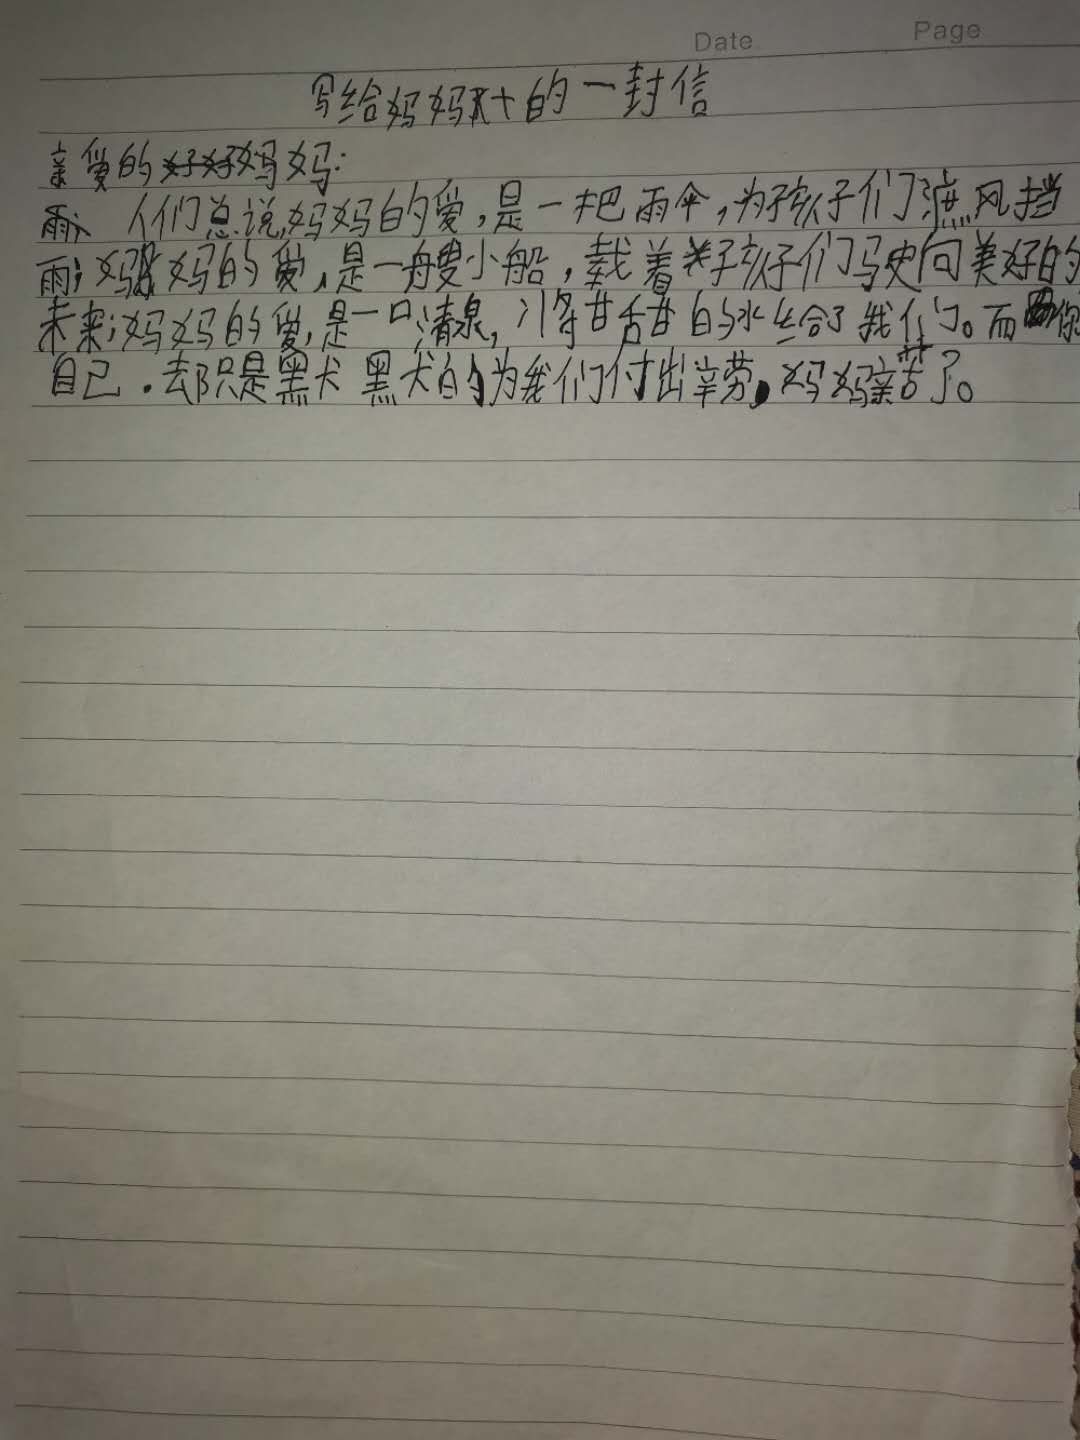 Date Page
写给妈妈的一封信
亲爱的妈妈:
雨、人们总说,妈妈的爱,是一把雨伞,为孩子们遮风挡
雨;妈妈的爱,是一艘小船,载着孩子们驶向美好的
未来;妈妈的爱,是一口清泉,将甘甜的水给了我们。而你
自己.却只是默默的为我们付出辛劳,妈妈亲苦了。